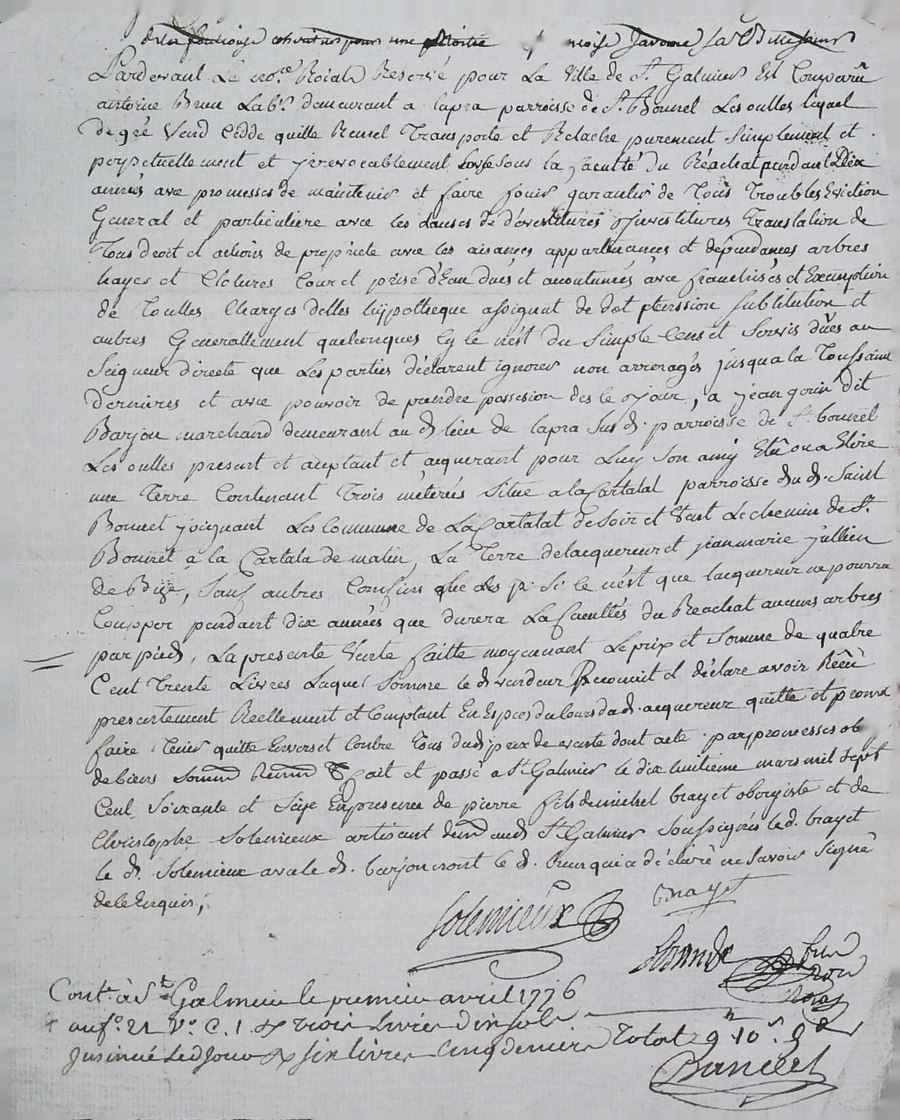 Pardevant Le no.re Roial Reservé pour La Ville de St. Galmier Est Comparû
antoine Brun Lab.r demeurant a Lapra parroisse de St. Bonnet Les oulles Lequel
de gré Vend Cedde quitte Remet Transporte et Relache purement Simplement et
perpetuellement et jrrevocablement sous la faculté du Réachat pendant Dix
années avec promesses de maintenir et faire jouir garantir de Tous Troubles Eviction
General et particuliere avec les clauses de dévestitures jnvestitures Translation de
Tous droit et actions de propriete avec les aisances appartenances et dépendances arbres
hayes et Clotures Cour et prise d'Eau dues et acoutumées avec franchises et Exemption
de Touttes Charges dettes hipotheque assignat de dot pention substitution et
autres Generallement quelconques Sy ce n'est du Simple Cens et Servis dûes au
Seigneur directe que Les parties déclarent ignorer non arreragés jusqua la Toussaint
Dernieres et avec pouvoir de prendre possesion des ce jour, a jean gorin dit
Barjon marchand demeurant au d. lieu de Lapra Sus d. parroisse de St. bonnet
Les oulles present et aceptant et acquerant pour Luy Son amy Elû ou a Elire
une Terre Contenant Trois méterés Situé a la Cartalat parroisse du d. Saint
Bonnet joignant Les Commune de La Cartalat de Soir et Vent Le chemin de St.
Bonnet a la Cartala de matin, La Terre de lacquereur et jean marie jullien
de Bize, Sauf autres Confins Si ce n'est que lacquereur ne pourra
Coupper pendant dix années que durera La facultés du Reachat aucuns arbres
par pied, La presente Vente faitte moyennant Le prix et Somme de quatre
Cent Trente Livres Laquel Somme le d. vendeur Reconnit et déclare avoir Reçû
presentement Réellement et Comptant En Espces du Cours du d. acquereur quitte et promet
faire Tenir quitte Envers et Contre Tous du d. prix de vente dont acte par promesses ob
de biens Soum Renon fait et passé a St. Galmier le dix huitieme mars mil Sept
Cent Soixante et Seze En presence de pierre fils de michel brayet obergiste et de
Christophe Solemieux artisant dem au d. St. Galmier Soussignés le d. brayet
le d. Solemieux avec le d. barjon non le d. brun qui a déclaré ne Savoir Signé
de ce Enquis,
Solemieux Brayet
Cont. à St. Galmier le premier avril 1776
au f.o 21 V.o C. 1 trois livres dix sols
jnsinué Led jour six livres Cinq deniers Total 9 10